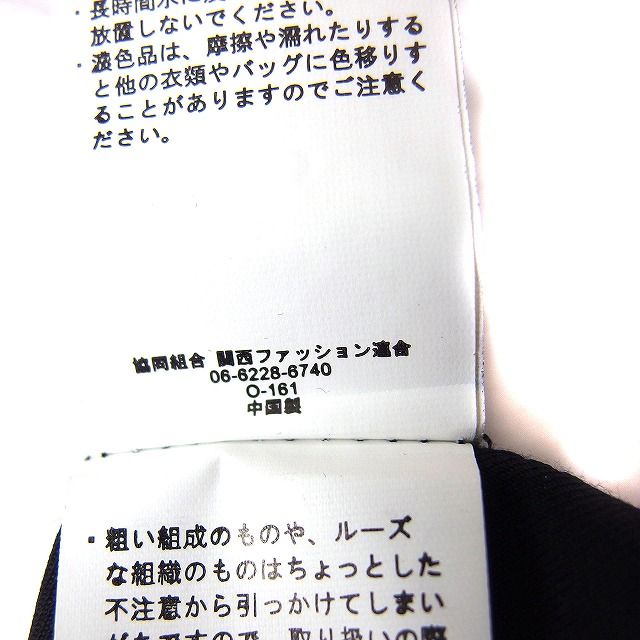 ・長時間水に
放置しないでください。
・濃色品は、摩擦や濡れたりする
と他の衣類やバッグに色移りす
ることがありますのでご注意く
ださい。
協同組合 関西ファッション連合
06-6228-6740
O-161
中国製
・粗い組成のものや、ルーズ
な組織のものはちょっとした
不注意から引っかけてしまい
がちですので、取り扱いの際